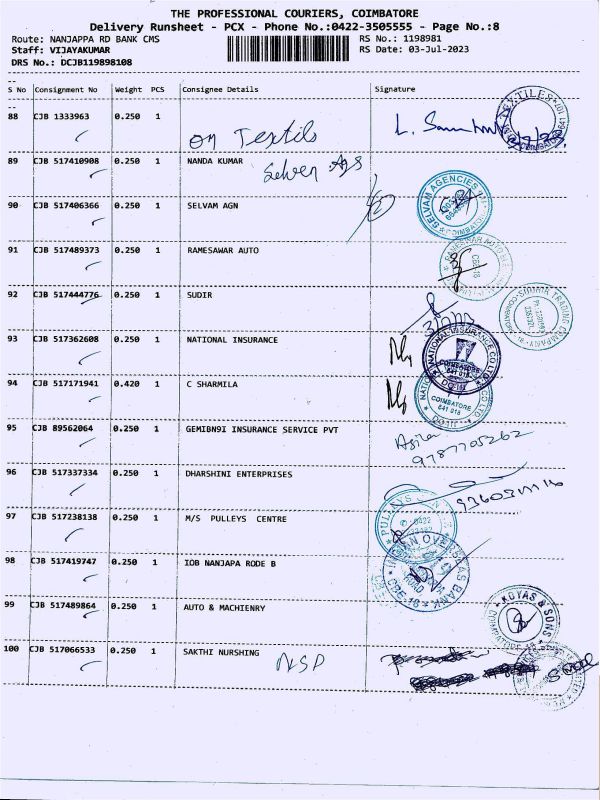 THE PROFESSIONAL COURIERS, COIMBATORE
Delivery Runsheet - PCX - Phone No.:0422-3505555 - Page No.:8
Route: NANJAPPA RD BANK CMS RS No.: 1198981
Staff: VIJAYAKUMAR RS Date: 03-Jul-2023
DRS No.: DCJB119898108
S No Consignment No Weight PCS Consignee Details Signature
88 CJB 1333963 0.250 1 Om Textils
89 CJB 517410908 0.250 1 NANDA KUMAR Selven Ags
90 CJB 517406366 0.250 1 SELVAM AGN
SELVAM AGENCIES COIMBATORE
91 CJB 517489373 0.250 1 RAMESAWAR AUTO
92 CJB 517444776 0.250 1 SUDIR
TRADING COMPANY
93 CJB 517362608 0.250 1 NATIONAL INSURANCE
NATIONAL INSURANCE CO LTD
641 018
94 CJB 517171941 0.420 1 C SHARMILA
COIMBATORE
641 018
95 CJB 89562064 0.250 1 GEMIBN9I INSURANCE SERVICE PVT
9787705262
96 CJB 517337334 0.250 1 DHARSHINI ENTERPRISES
97 CJB 517238138 0.250 1 M/S PULLEYS CENTRE
PULLEYS
0422
98 CJB 517419747 0.250 1 IOB NANJAPA RODE B
OVERSEAS BANK
CBE-18
99 CJB 517489864 0.250 1 AUTO & MACHIENRY
KOYAS & SONS
100 CJB 517066533 0.250 1 SAKTHI NURSHING NSP